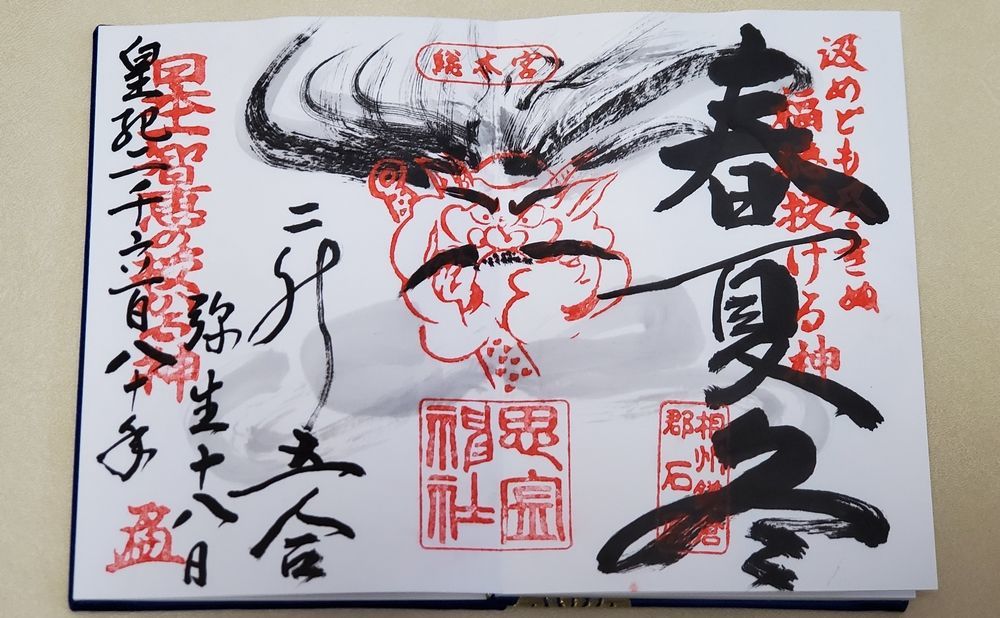 汲めども尽きぬ
春夏冬
相州鎌倉
郡石
総本宮
思金
神社
二升五合
弥生十八日
皇紀二千六百八十年